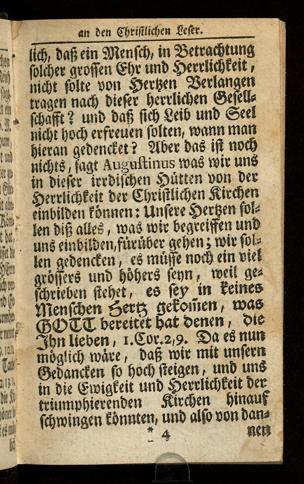 an den Christlichen Leser.
lich, daß ein Mensch, in Betrachtung
solcher grossen Ehr und Herrlichkeit,
nicht solte von Hertzen Verlangen
tragen nach dieser herrlichen Gesell-
schafft? und daß sich Leib und Seel
nicht hoch erfreuen solten, wann man
hieran gedencket? Aber das ist noch
nichts, sagt Augustinus was wir uns
in dieser irrdischen Hütten von der
Herrlichkeit der Christlichen Kirchen
einbilden können: Unsere Hertzen sol-
len diß alles, was wir begreiffen und
uns einbilden, fürüber gehen; wir sol-
len gedencken, es müsse noch ein viel
grössers und höhers seyn, weil ge-
schrieben stehet, es sey in keines
Menschen Hertz gekom̃en, was
GOTT bereitet hat denen, die
Ihn lieben, 1. Cor. 2, 9. Da es nun
möglich wäre, daß wir mit unsern
Gedancken so hoch steigen, und uns
in die Ewigkeit und Herrlichkeit der
triumphierenden Kirchen hinauf
schwingen könnten, und also von dan-
* 4 nen